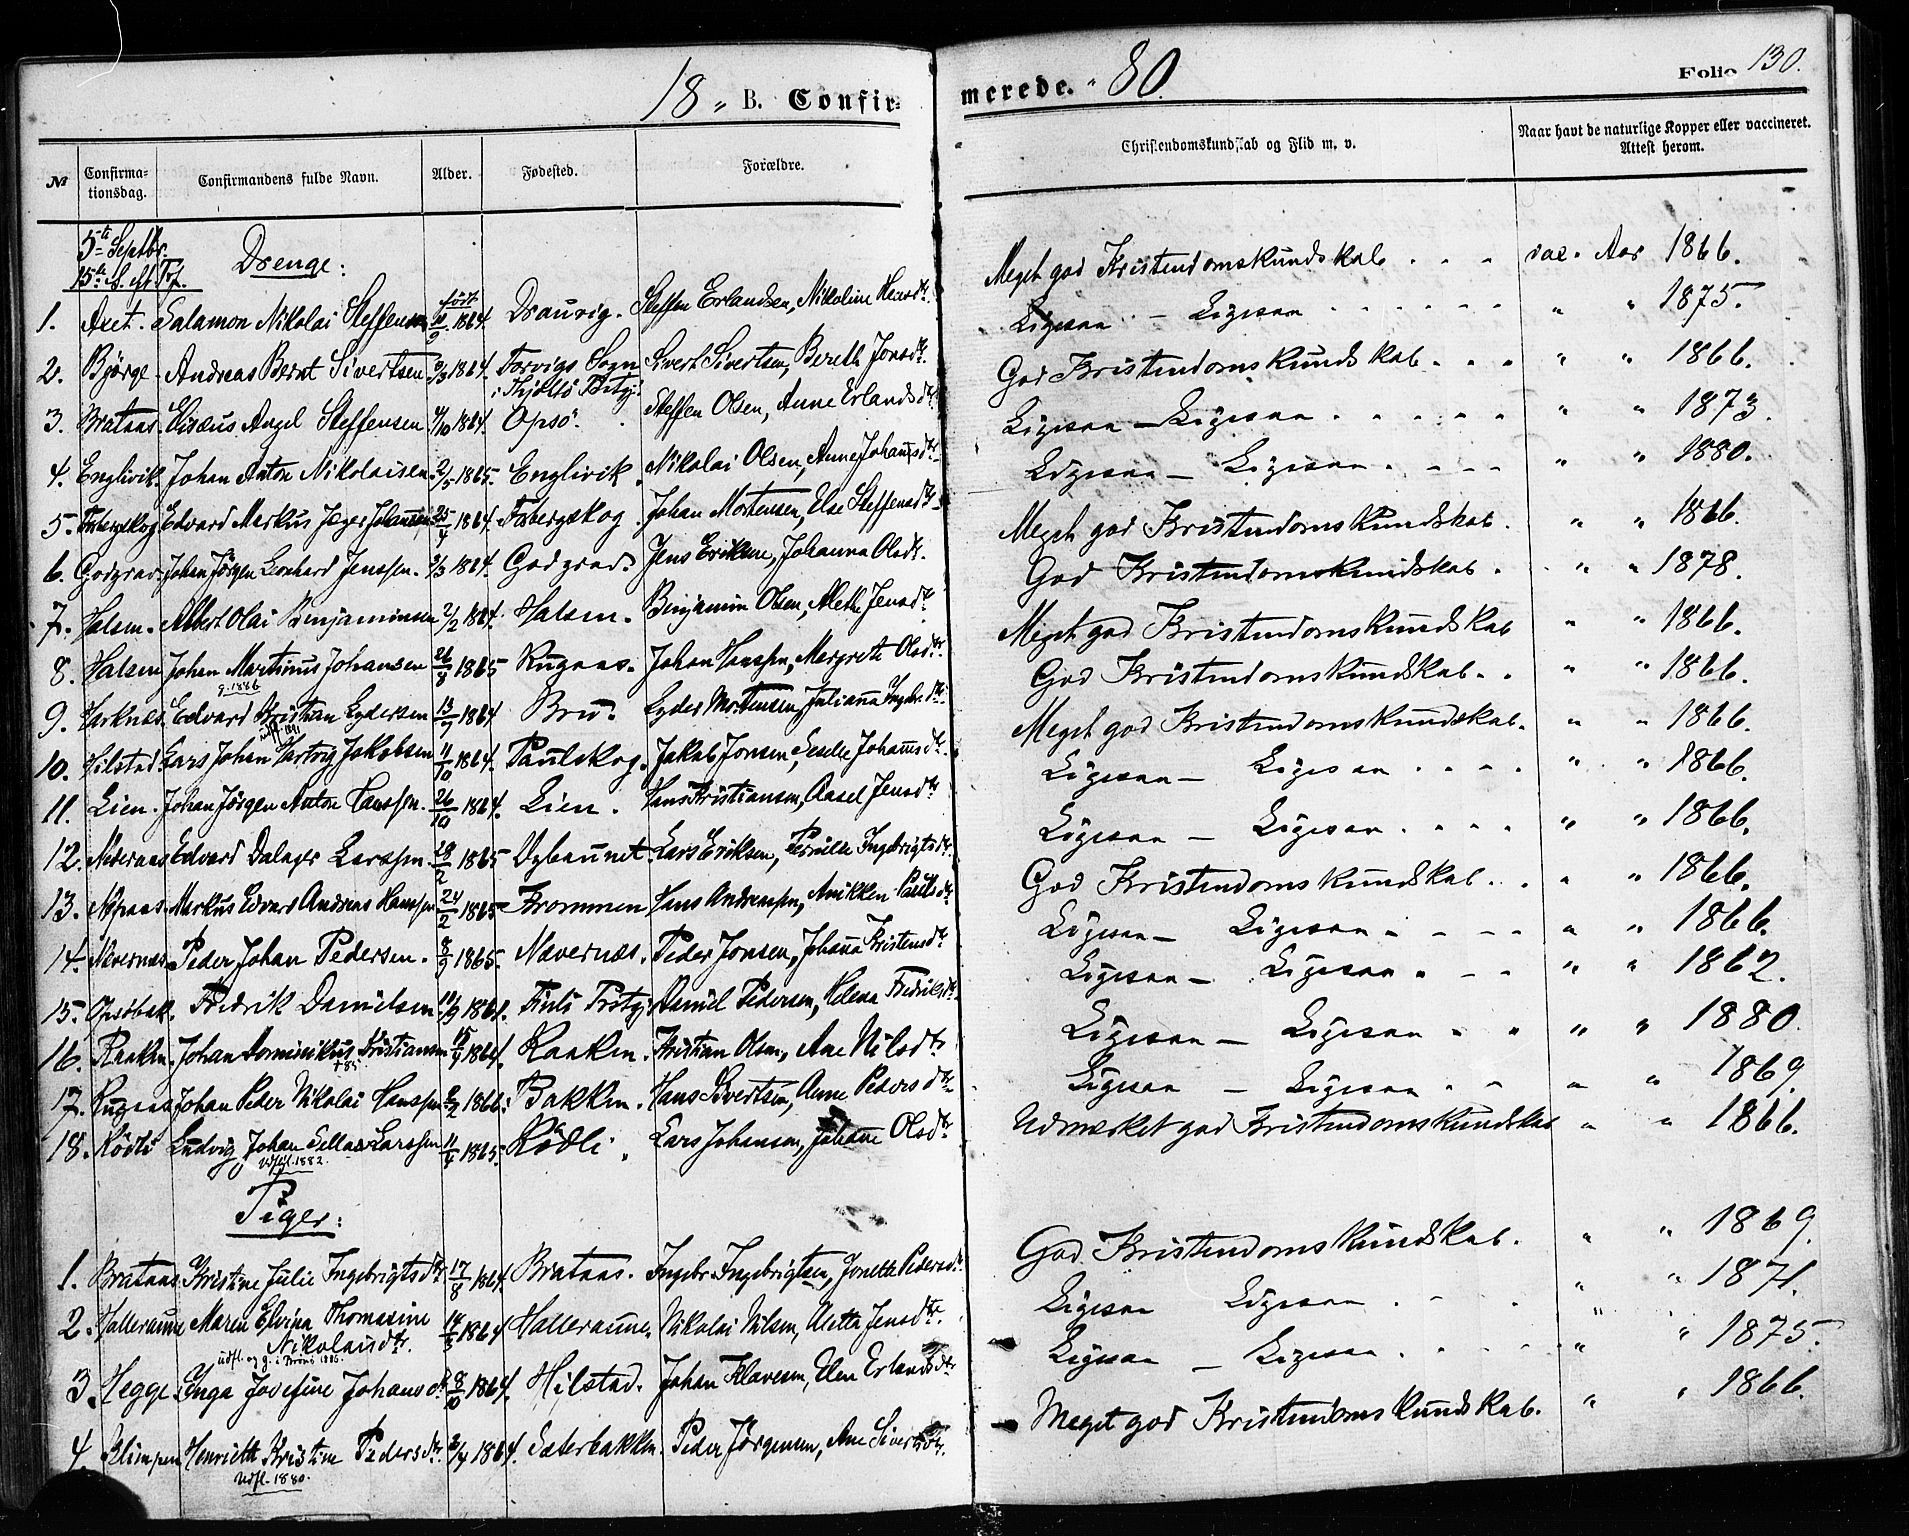 18 „ B. Confirmerede. „ 80. Folio 130.
№ Confirmationsdag. Confirmandens fulde Navn. Alder. Fødested. Forældre. Christendomskundskab og Flid m. v. Naar havt de naturlige Kopper eller vaccineret. Attest herom.
5te Septbr.
15de S. eft. Tr. Drenge:
1. Axet. Salamon Nikolai Steffensen født 1864. Drauvig. Steffen Erlandsen, Nikoline Hansdtr. Meget god Kristendomskundskab . . . vac. Aar 1866.
2. Bjørge. Andreas Bernt Sivertsen 1864. Torvigs Sogn i Tjøttø Prtgj. Sivert Sivertsen, Bereth Jonsdtr. Ligesaa - Ligesaa " " 1875.
3. Brataas. Elisæus Angel Steffensen 4/10 1864. Opsø. Steffen Olsen, Anne Erlandsdtr. God Kristendomskundskab . . . " " 1866.
4. Englivik. Johan Anton Nikolaisen 2/5 1865. Englivik. Nikolai Olsen, Anne Johansdtr. Ligesaa - Ligesaa " " 1873.
5. Edvard Markus Jæger Johansen 25/4 1864. Johan Mortensen, Else Steffensdtr. Ligesaa - Ligesaa " " 1880.
6. Godgrav. Johan Jørgen Leonhard Jenssen. 1864. Godgrav. Jens Eriksen, Johanna Olsdr. Meget god Kristendomskundskab. " " 1866.
7. Halsen. Albert Olai Benjaminsen 2/2 1864. Halsen. Benjamin Olsen, Methe Jensdtr. God Kristendomskundskab. " " 1878.
8. Halsen Johan Martinus Johansen 26/8 1865 Rugaas. Johan Hanssen, Margrete Olsdtr. Meget god Kristendomskundskab " " 1866.
g. 1886
9. Harknæs Edvard Kristian Lydersen 13/7 1864 Bru. Lyder Mortensen, Julianna Ingebr.dtr. God Kristendomskundskab. . " " 1866.
udfl. 1891
10. Hilstad. Lars Johan Hartvig Jakobsen 11/10 1864. Paulskog. Jakob Jonsen, Sesele Johansdtr. Meget god Kristendomskundskab. " " 1866.
11. Lien. Johan Jørgen Anton Hanssen. 26/10 1864. Lien. Hans Kristiansen, Aasel Jensdtr. Ligesaa - Ligesaa " " 1866.
12. Nederaas Edvard Dalager Larssen. 1865 Lars Eriksen, Pernille Ingebrigtsdtr. Ligesaa - Ligesaa " " 1866.
13. Markus Edvard Andreas Hanssen 24/2 1865 Frommen Hans Andreassen, Anikken Paulsdtr. God Kristendomskundskab. . " " 1866.
14. Nævernæs Peder Johan Pedersen. 8/9 1865. Nævernæs. Peder Jonsen, Johanna Kristensdtr. Ligesaa - Ligesaa " " 1866.
15. Opsøbak. Fredrik Danielsen Prstgj. Daniel Pedersen, Helena Fredriksdtr. Ligesaa - Ligesaa " " 1862.
16. Raaken. Johan Dominikus Kristiansen 1864. Raaken. Kristian Olsen, Ane Nilsdtr. Ligesaa - Ligesaa " " 1880.
17. Rugaas Johan Peder Nikolai Hanssen 1866. Bakken. Hans Sivertsen, Anne Pedersdtr. Ligesaa - Ligesaa " " 1869.
18. Rødli Ludvig Johan Sellæs Larssen 11/4 1865. Rødli. Lars Johansen, Johanne Olsdtr. Udmærket god Kristendomskundskab " " 1866.
Udfl. 1882.
Piger:
1. Brataas Kristine Julie Ingebrigtsdtr. 17/8 1864. Brataas. Ingebr. Ingebrigtsen, Jonetta Pedersdtr. God Kristendomskundskab. " " 1869.
2. Halleraune Maren Elvina Thomasine Nikolaisdtr. 1864 Halleraune. Nikolai Nilsen, Aletta Jensdtr. Ligesaa Ligesaa " " 1871.
udfl. og g. i Brønø 1885.
3. Hegge. Inga Josefine Johansdtr. 1864. Hilstad. Johan Klavesen, Elen Erlandsdtr Ligesaa - Ligesaa " " 1875.
4. Klimpen Henriette Kristine Pedersdtr. 1864. Sæterbakken. Peder Jørgensen, Ane Sivertsdtr. Meget god Kristendomskundskab. " " 1866.
Udfl. 1880.